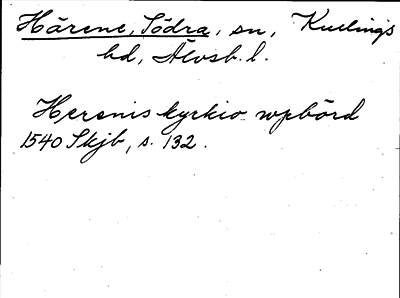 Härene, Södra, sn, Kullings
hd, Älvsb. l.
Hersnis kyrkio wpbörd
1540 Skjb, s. 132.